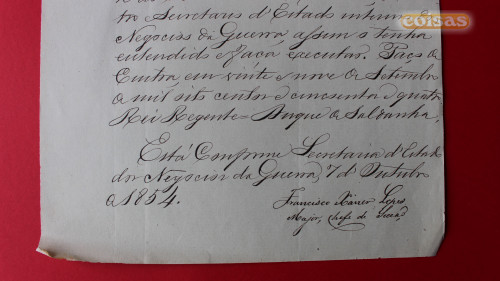 coisas
tro Secretario d'Estado interino dos
Negocios da Guerra assim o tenha
entendido e faça executar. Paço de
Cintra em vinte e nove de Setembro
de mil oito centos e cincoenta e quatro
Rei Regente = Duque de Saldanha.
Está Conforme Secretaria d'Estado
dos Negocios da Guerra, 7 d'Outubro
de 1854.
Francisco Xavier Lopes
Major, Chefe de Secção